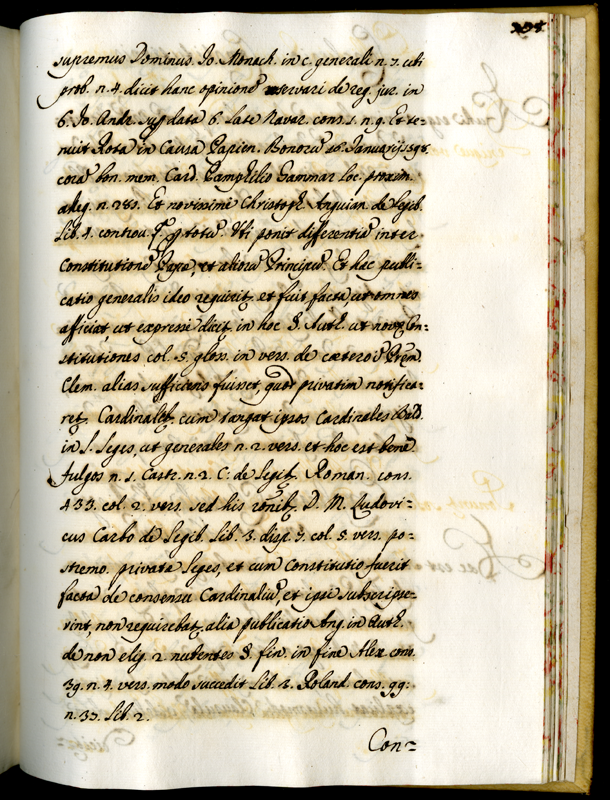 supremus Dominus. Jo. Monach. in c. generali n. 7. ubi
prob. n. 4. dicit hanc opinione servari de reg. jur. in
6. Jo. Andr. sup data 6. Late Navar. cons. 1. n. 9. Et te=
nuit Rota in Causa Papien. Bonoru 26. Januarij 1598.
cora bon. mem. Card. Pamphilio Gammar loc. proxim.
alleg. n. 283. Et novissime Christoph. Anguian. de Legib.
Lib. 1. controu. 7. p totu. Ubi ponit differentia inter
Constitutione Papæ, et alioru Principu. Et hac publi=
catio generalis ideo requirit et fuit facta ut omnes
afficiat, ut expresse dicit in hoc §. Auth. ut novæ Con=
stitutiones col. 5. gloss. in vers. de cætero in Prem.
Clem. alias sufficiens fuisset, quod privatim notifica=
ret Cardinalib. cum tangat ipsos Cardinales Bald.
in l. leges, ut generales n. 2. vers. et hoc est bene
fulgos n. 1. Castr. n. 2. C. de Legib. Roman. cons.
433. col. 2. vers. sed his D. M. Ludovi=
cus Carbo de Legib. Lib. 3. disp. 7. col. 5. vers. po=
stremo. privatæ leges, et cum Constitutio fuerit
facta de consensu Cardinaliu, et ipsi subscripse=
rint, non requirebat alia publicatio Ang. in Auth.
de non elig. 2. nubentes §. fin. in fine Alex. cons.
39. n. 4. vers. modo succedit Lib. 2. Roland. cons. 99.
n. 33. Lib. 2.
Con=